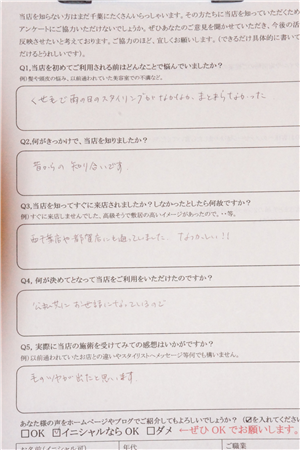 当店を知らない方はまだ千葉にたくさんいらっしゃいます。その方たちに当店を知っていただくため
アンケートにご協力いただけないでしょうか。ぜひあなたのご意見を聞かせていただき、今後の活
反映させたいと考えております。ご協力のほど、宜しくお願いします。(できるだけ具体的に書いて
だけるとうれしいです)。
Q1,当店を初めてご利用される前はどんなことで悩んでいましたか?
例)髪や頭皮の悩み、以前通われていた美容室での不満など。
くせ毛で雨の日のスタイリングがなかなかまとまらなかった
Q2,何がきっかけで、当店を知りましたか?
昔からの知り合いです
Q3,当店を知ってすぐに来店されましたか?しなかったとしたら何故ですか?
例)すぐに来店しませんでした。高級そうで敷居の高いイメージがあったので、・・等。
西千葉店や都賀店にも通っていました。なつかしい!!
Q4, 何が決めてとなって当店をご利用をいただけたのですか?
公私共にお世話になっているので
Q5, 実際に当店の施術を受けてみての感想はいかがですか?
例)以前通われていたお店との違いやスタイリストへメッセージ等何でも構いません。
毛のツヤが出たと思います
あなた様の声をホームページやブログでご紹介してもよろしいでしょうか?(☑を入れてください
□OK ☑イニシャルなら OK □ダメ ←ぜひOKでお願いします。
お名前(イニシャル可) 年代 ご職業